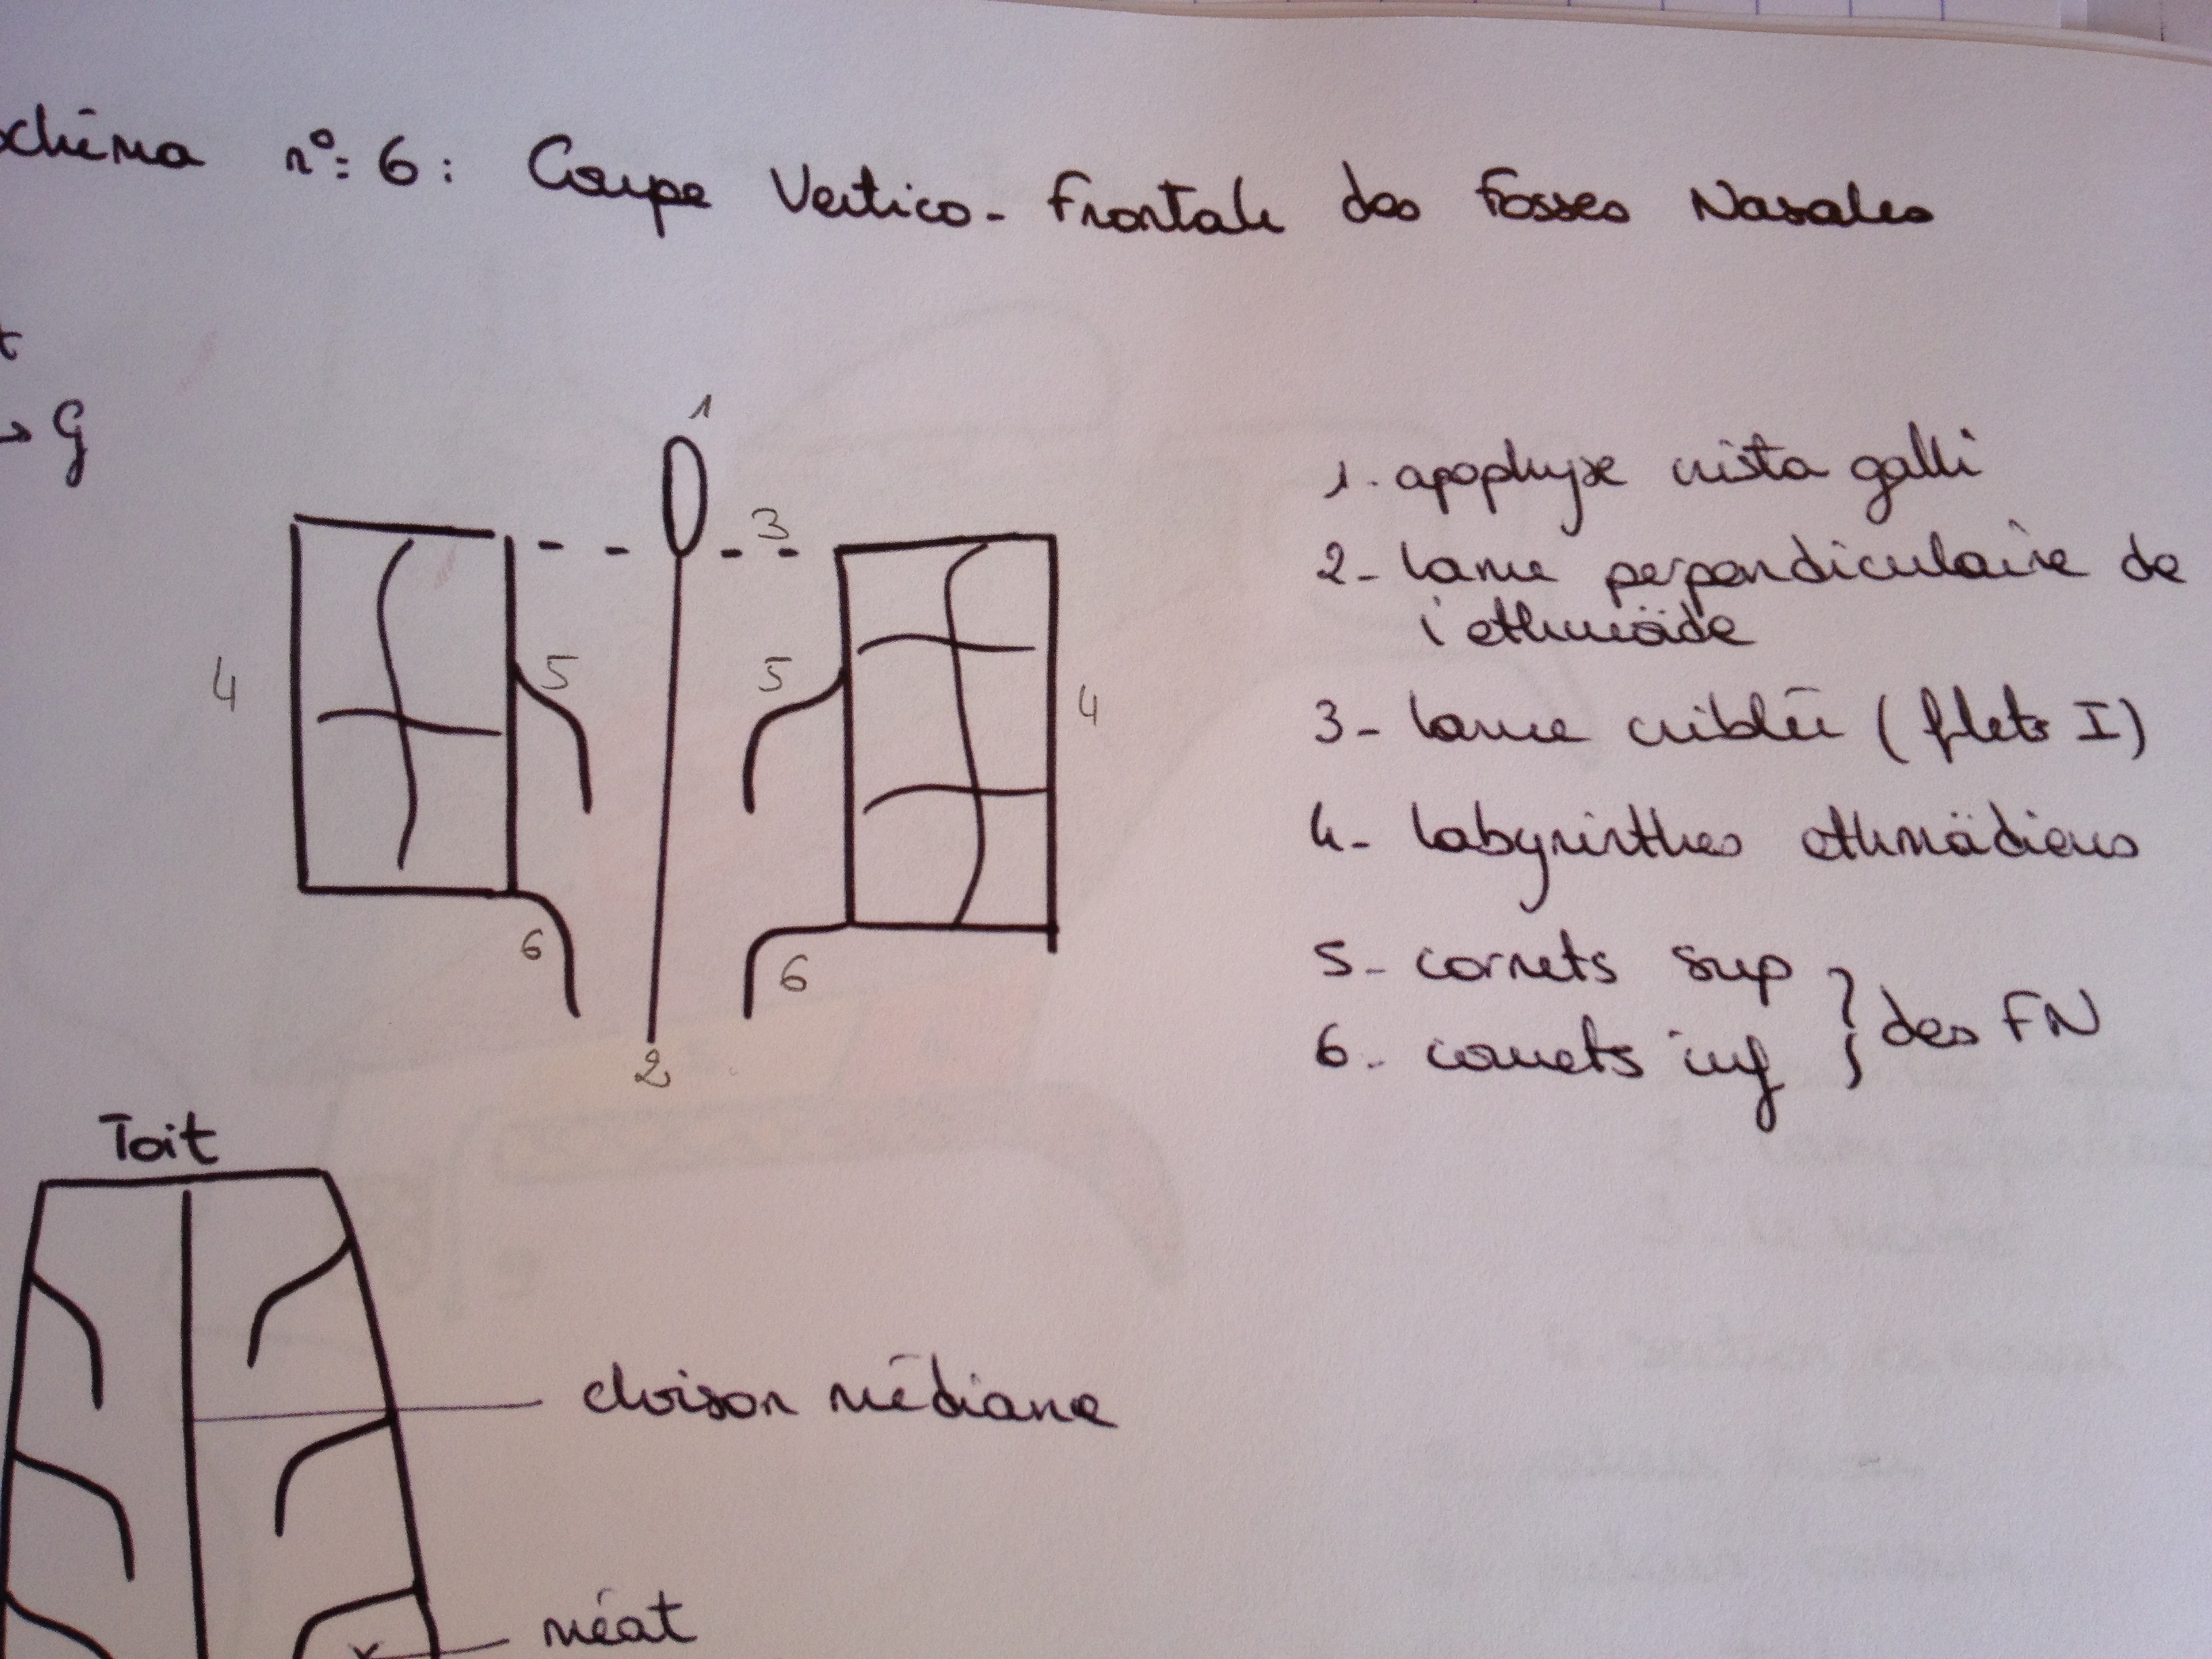 schéma n°: 6 : Coupe Vertico-Frontale des Fosses Nasales
t
→ G
1
3
5
5
4
4
6
6
2
1. apophyse crista galli
2- lame perpendiculaire de
l'ethmoïde
3- lame criblée (filets I)
4- labyrinthes ethmoïdiens
5- cornets sup
6- cornets inf } des FN
Toit
cloison médiane
méat